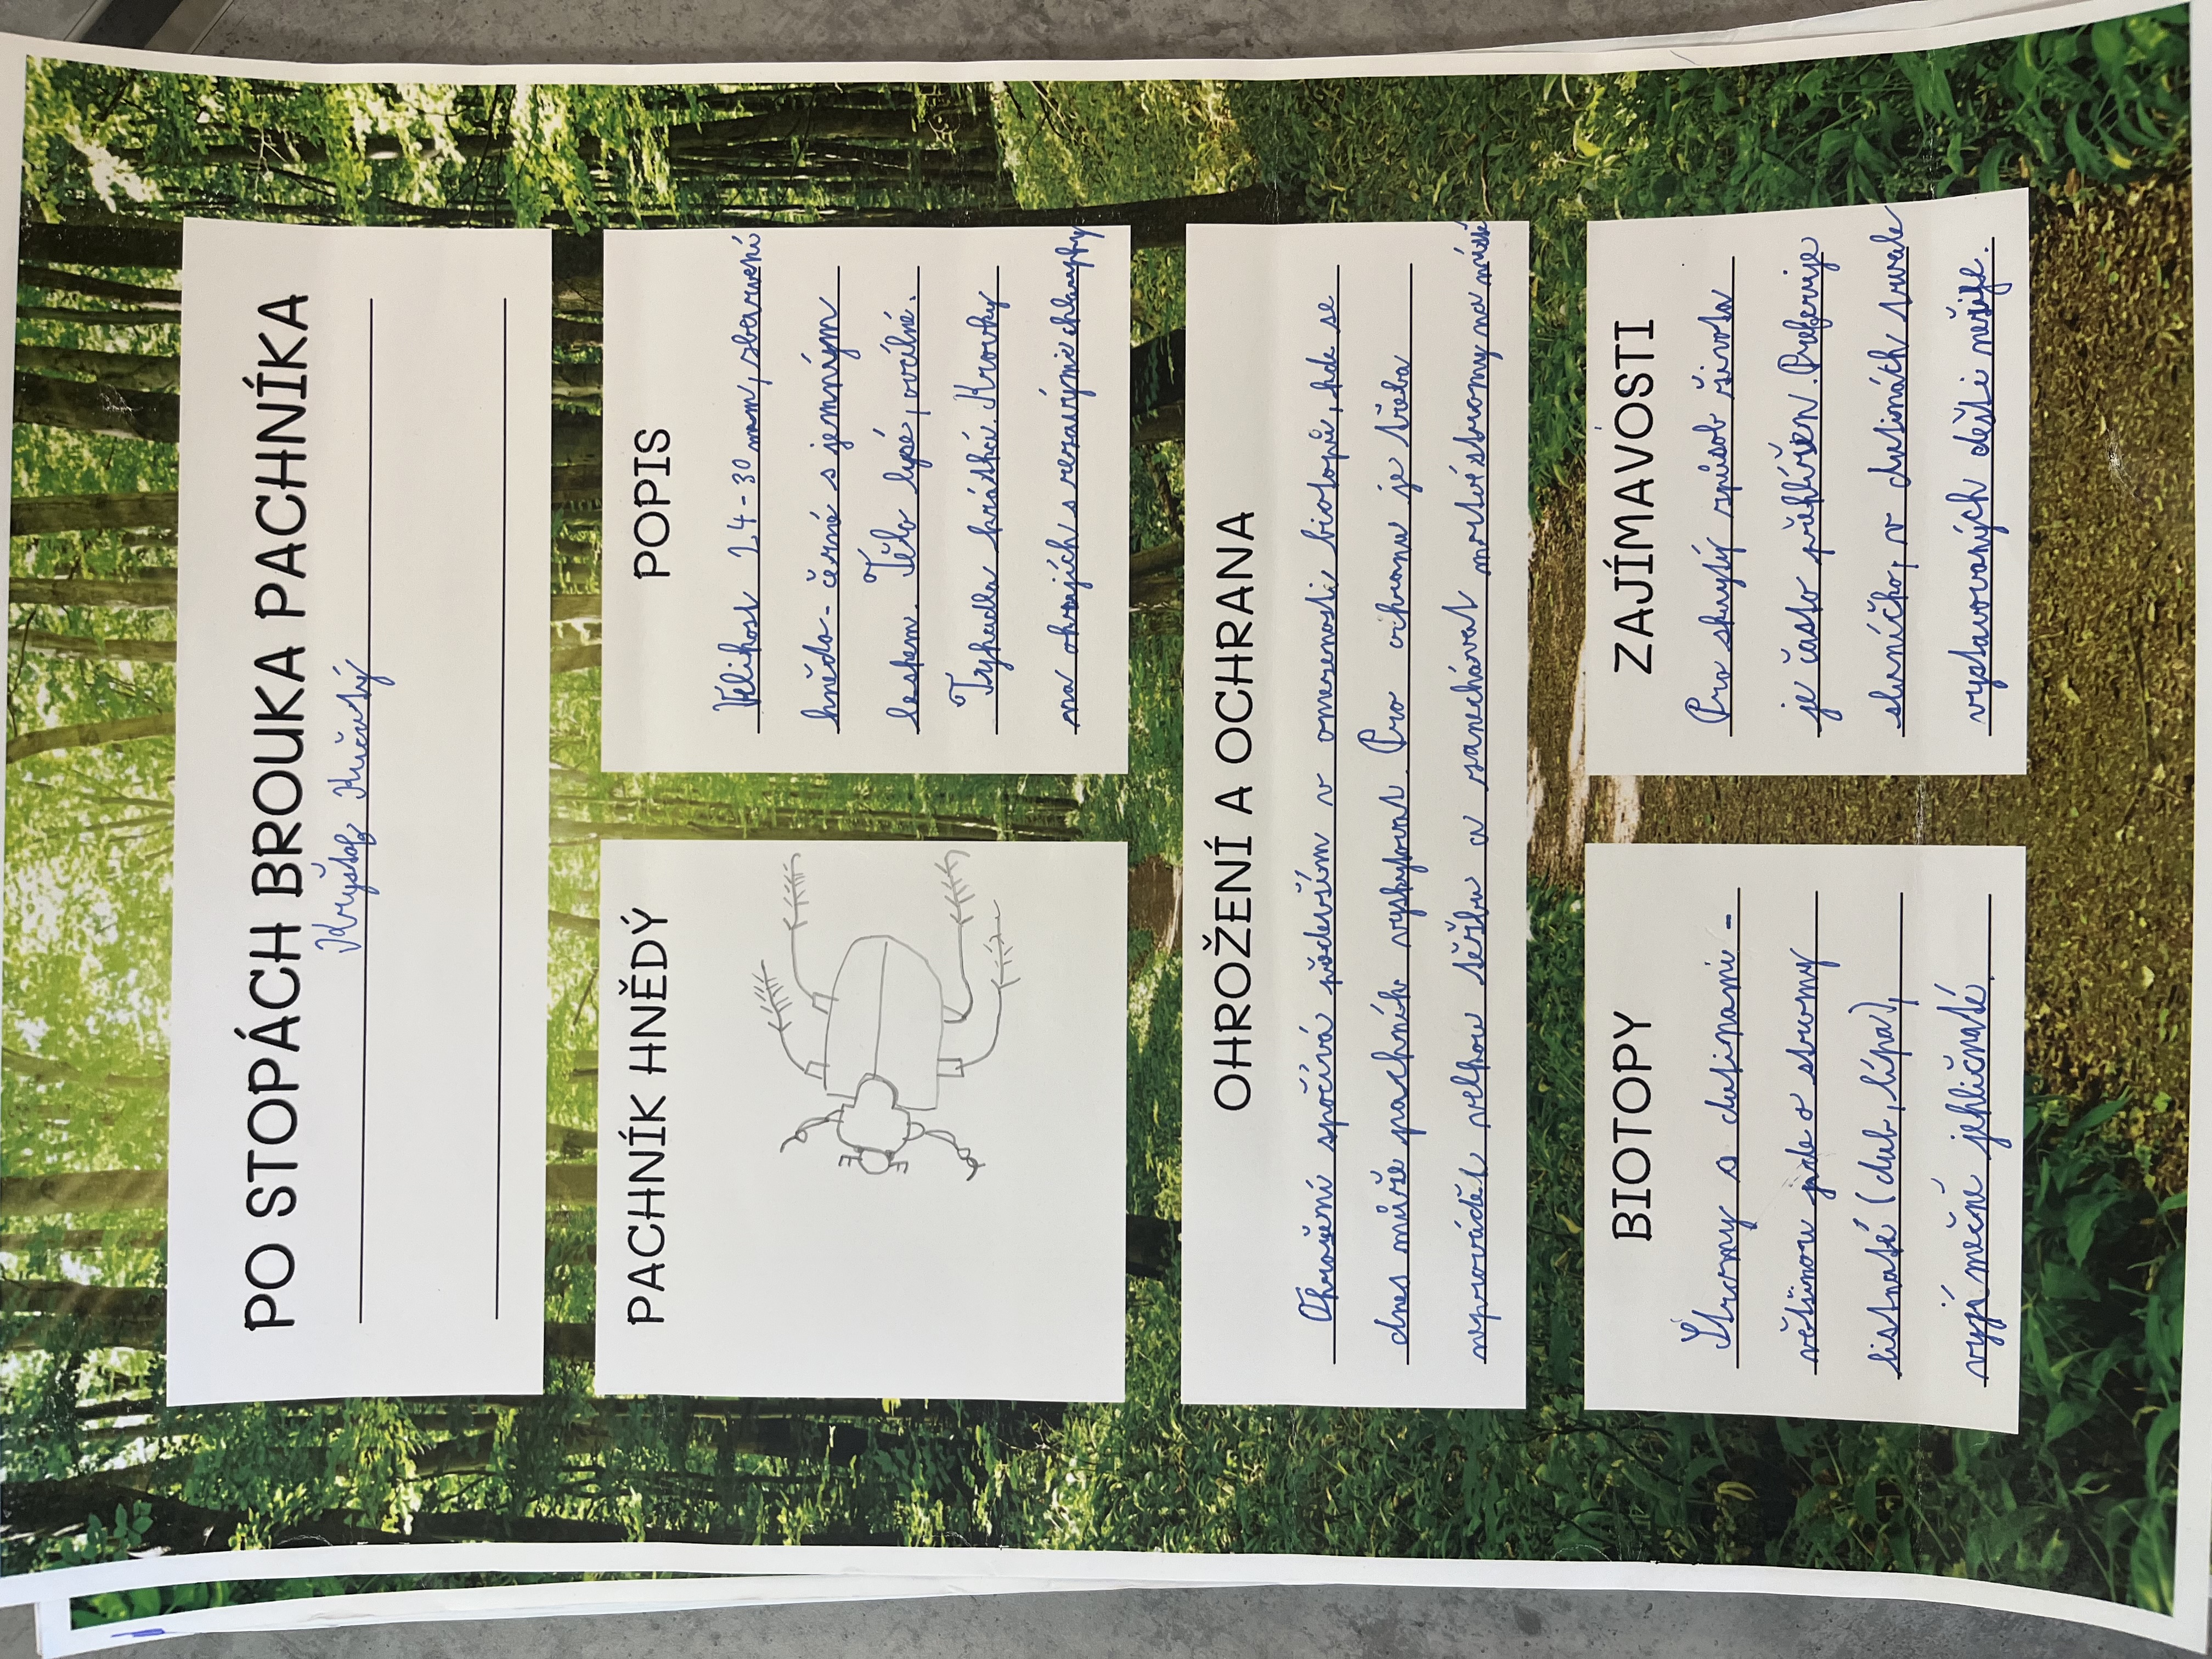 PO STOPÁCH BROUKA PACHNÍKA
Kryštof Křičenský
PACHNÍK HNĚDÝ
POPIS
Velikost 24-30 mm, zbarvení
hnědo-černé s jemným
leskem. Tělo lysé, oválné.
Tykadla krátká. Krovky
na okrajích s rezavými chlupy
OHROŽENÍ A OCHRANA
Ohrožení spočívá především v omezenosti biotopů, kde se
dnes může pachník vyskytovat. Pro ochranu je třeba
neprovádět velkou těžbu a zanechávat mrtvé stromy na místě
BIOTOPY
Stromy s dutinami -
většinou jde o stromy
listnaté (dub, lípa),
vyjímečně jehličnaté.
ZAJÍMAVOSTI
Pro skrytý způsob života
je často přehlížen. Preferuje
sluníčko, v dutinách trvale
vystavovaných dešti nežije.